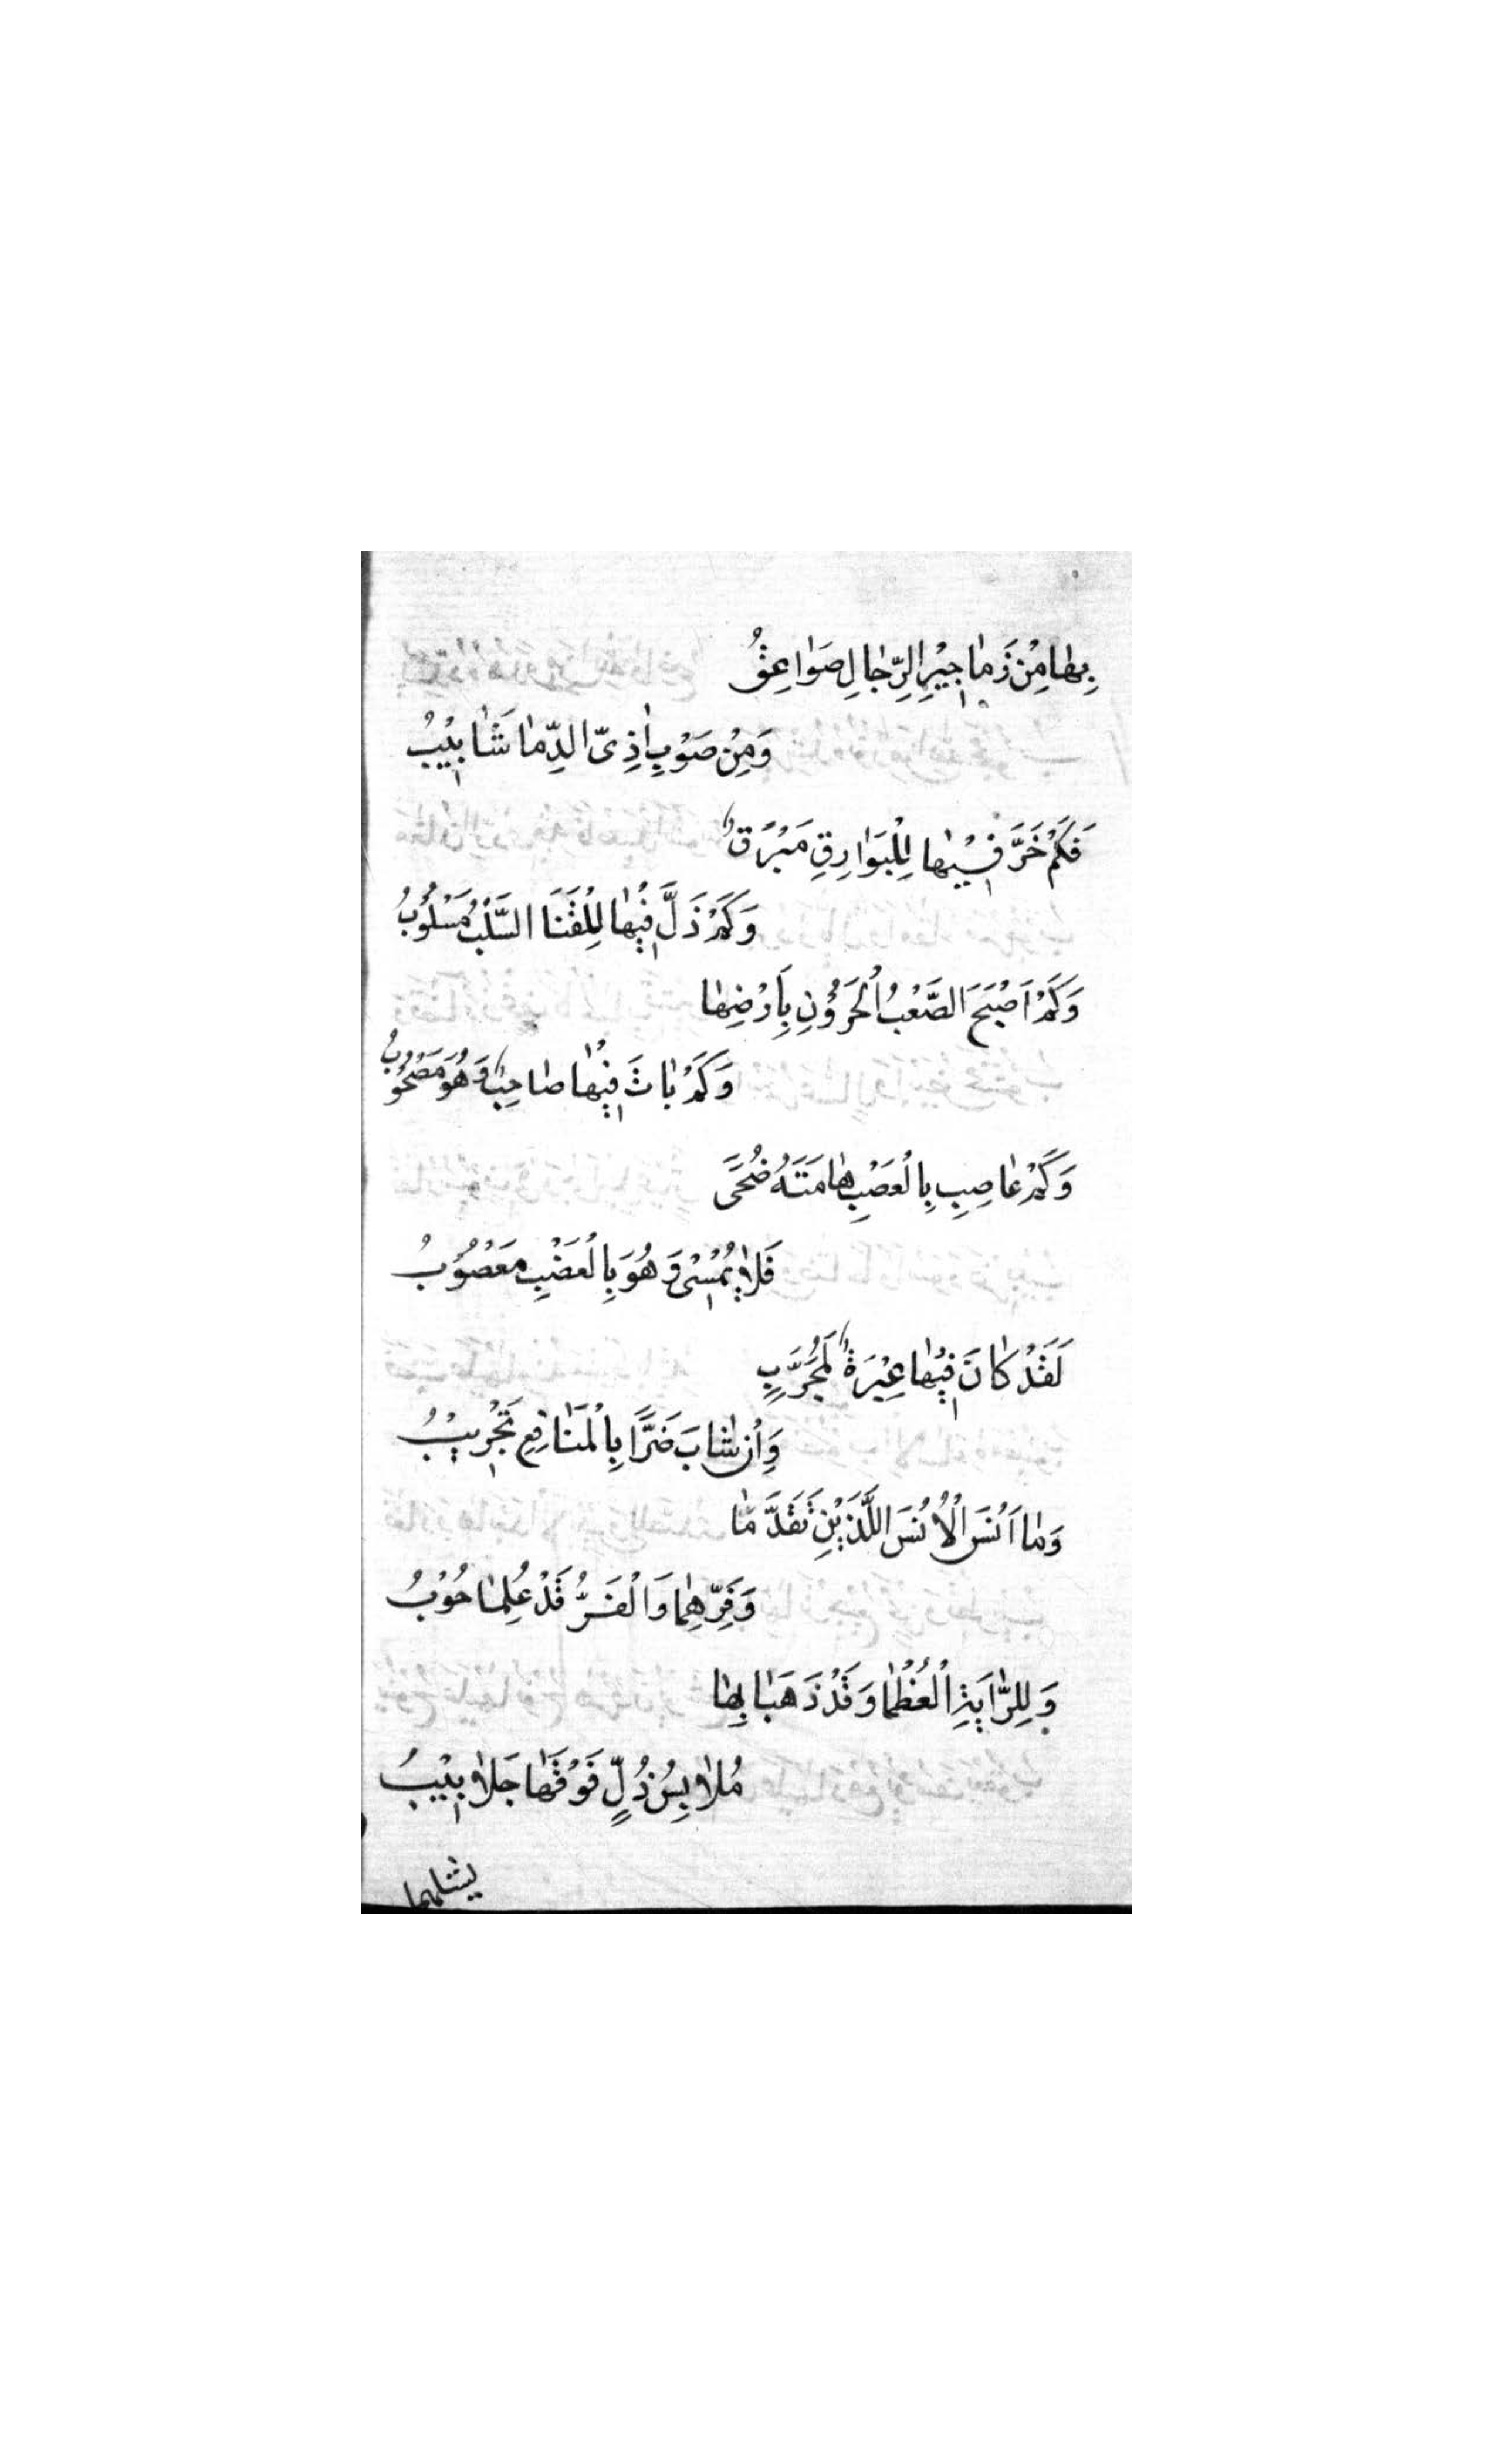 بِهٰا مِنْ زَمٰاجِيْرِ الرِّجٰالِ صَوٰاعِقُ
وَمِنْ صَوْبِ اٰذِىِّ الدِّمٰا شَاٰبِيْبُ
فَكَمْ خَرَّ فِيْهٰا لِلْبَوٰارِقِ مَبْرَقٌ
وَكَمْ ذَلَّ فِيْهٰا لِلْقَنَا السَّلْبُ مَسْلُوْبُ
وَكَمْ اَصْبَحَ الصَّعْبُ الْحَرُوْنِ بِاَرْضِهٰا
وَكَمْ بٰاتَ فِيْهٰا صٰاحِبٌ وَهُوَ مَصْحُوْبُ
وَكَمْ عٰاصِبٍ بِالْعَصْبِ هٰامَتَهُ ضُحًى
فَلَمْ يُمْسِىْ وَهُوَ بِالْعَضْبِ مَعْصُوْبُ
لَقَدْ كٰانَ فِيْهٰا عِبْرَةٌ لِمُجَرِّبٍ
وَاِنْ شٰابَ ضَرًّا بِالْمَنٰافِعِ تَجْرِيْبُ
وَمٰا اَنْسَ اَلْاُنْسَ اللَّذَيْنِ تَقَدَّمٰا
وَفَرِّهِمٰا وَالْفَرُّ قَدْ عُلِمٰا حُوْبُ
وَلِلرّٰايَةِ الْعُظْمٰا وَقَدْ ذَهَبٰا بِهٰا
مُلٰابِسُ ذُلٍّ فَوْقَهٰا جَلٰابِيْبُ
يشلهما